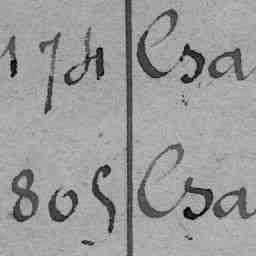 174 Csa
805 Csa